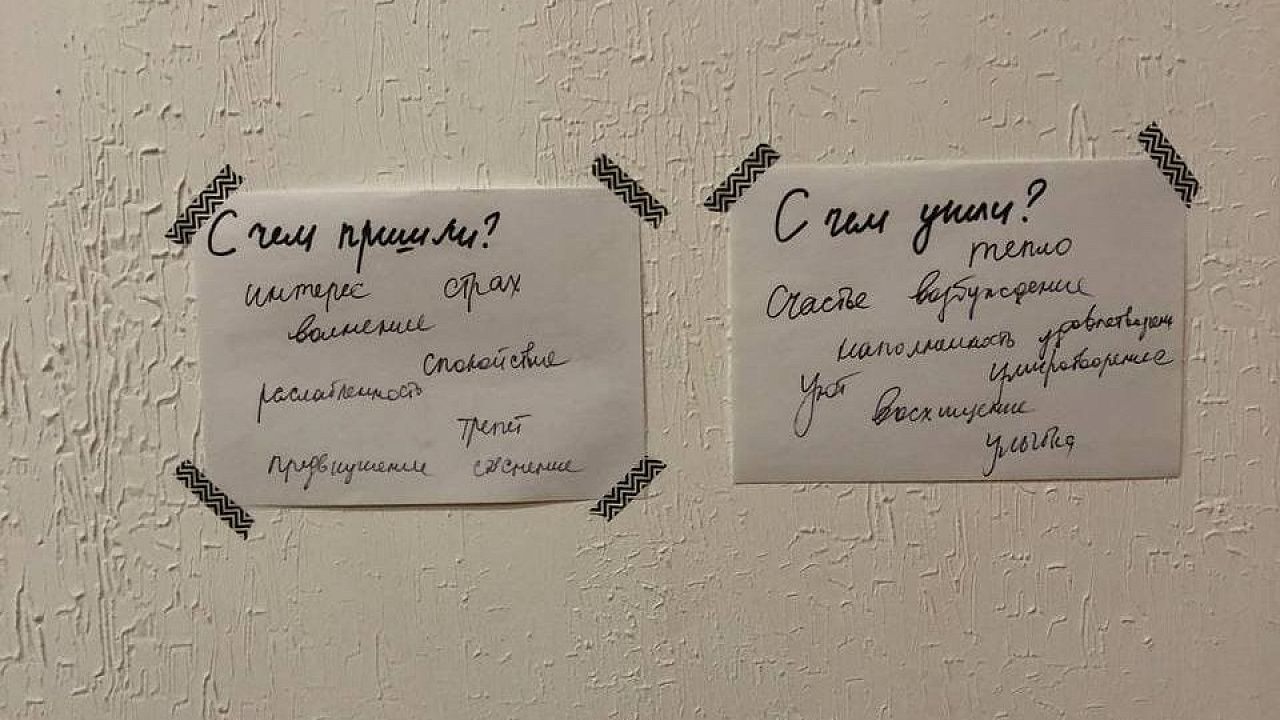 С чем пришли?
интерес страх
волнение
спокойствие
расслабленность
трепет
предвкушение стеснение
С чем ушли?
тепло
Счастье возбуждение
наполненность удовлетворение
умиротворение
Уют
Восхищение
улыбка